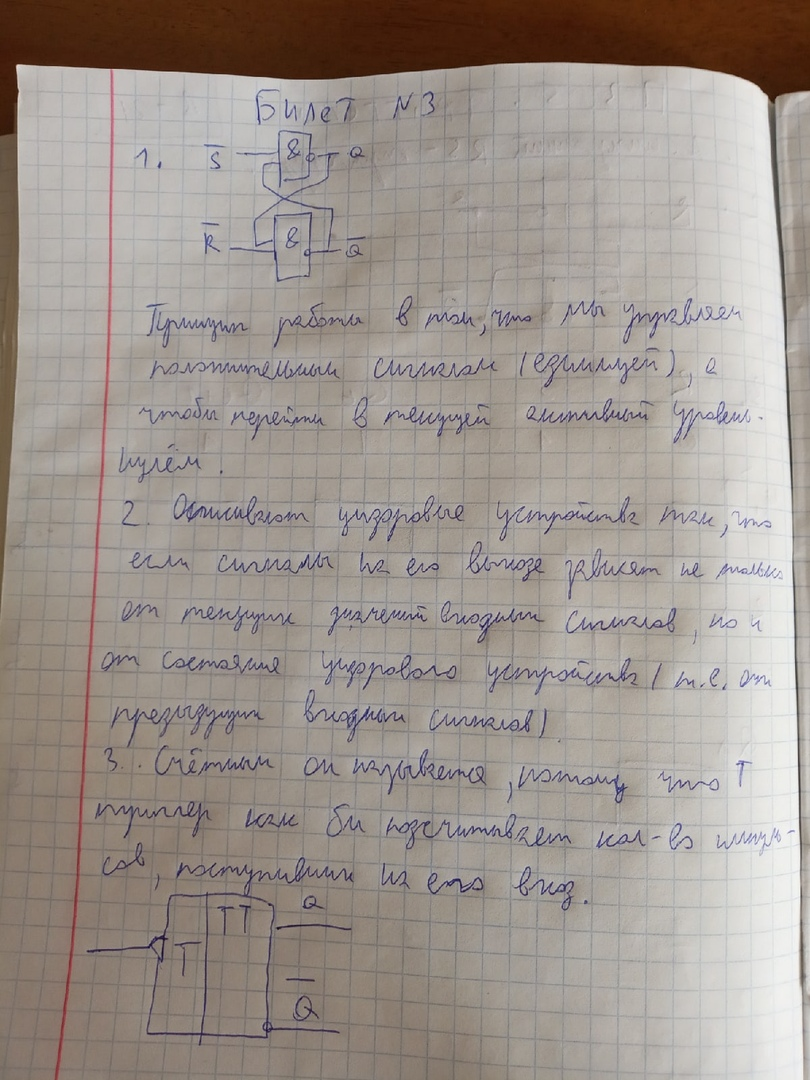 Билет №3
1. S̅ & Q
R̅ & Q̅
Принцип работы в том, что мы управляем
положительным сигналом (единицей), а
чтобы перейти в текущей активный уровень-
нулём.
2. Описывают цифровые устройства так, что
если сигналы на его выходе зависят не только
от текущих значений входных сигналов, но и
от состояния цифрового устройства (т.е. от
предыдущих входных сигналов)
3. Счётным он называется, потому что T
триггер как би подсчитывает кол-во импуль-
сов, поступивших на его вход.
T TT Q
Q̅